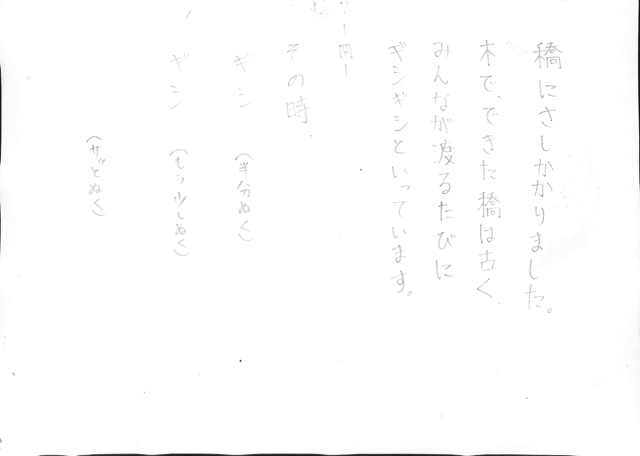 橋にさしかかりました。
木で、できた橋は古く、
みんなが渡るたびに
ギシギシといっています。
ー間ー
その時、
ギシ (半分ぬく)
ギシ (もう少しぬく)
(サッとぬく)